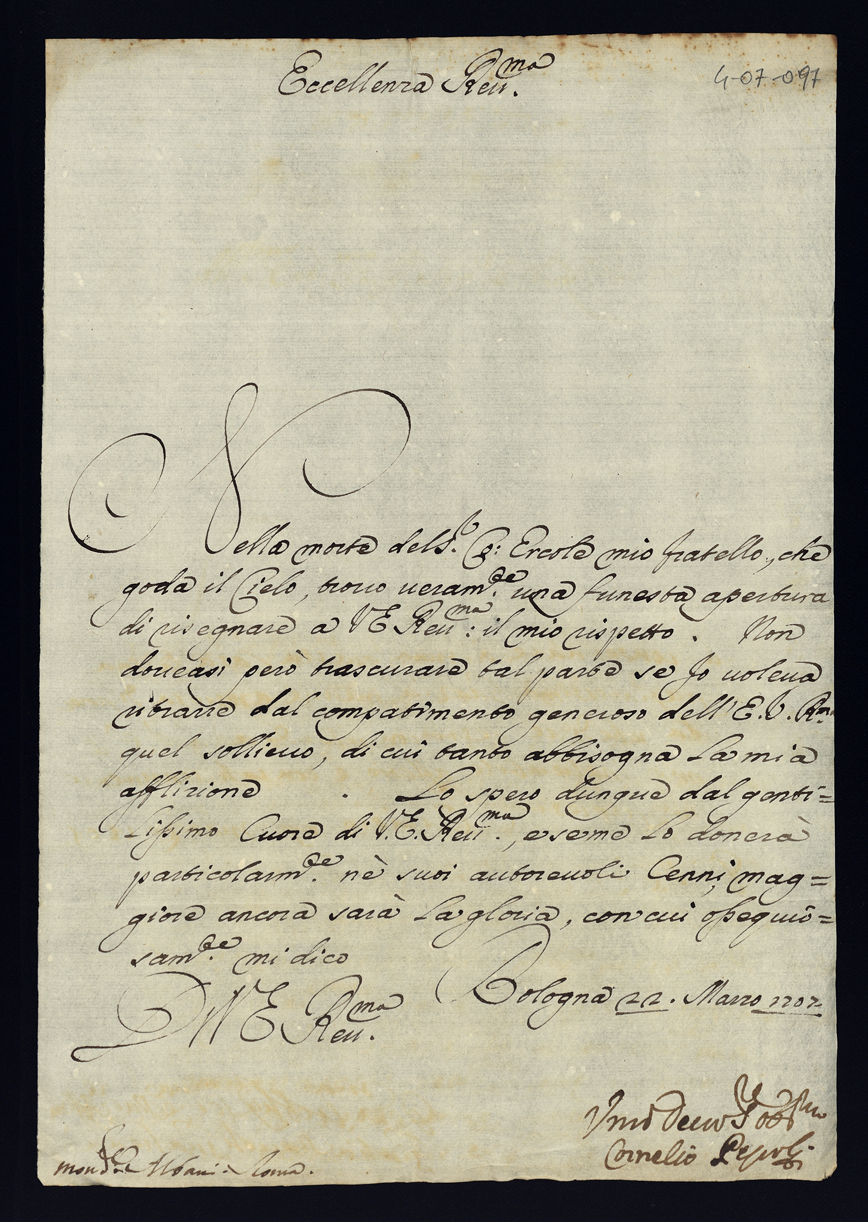 Eccellenza Reu.ma
4-07-097
Nella morte del S.r Co: Ercole mio fratello, che
goda il Cielo, trouo ueram.te una funesta apertura
di risegnare a V E Reu:ma il mio rispetto. Non
doueasi però trascurare tal parte se Jo uoleua
ritrarre dal compatimento generoso dell'E. V. R.ma
quel sollieuo, di cui tanto abbisogna la mia
afflizione. Lo spero dunque dal genti=
lissimo Cuore di V. E. Reu.ma, e se me lo donerà
particolarm.te nè suoi autoreuoli Cenni, mag=
giore ancora sarà la gloria, con cui ossequio=
sam.te mi dico
Di V E Reu.ma
Bologna 22. Marzo 1707
Vmo Deuo S.re
Cornelio Pepoli
Albani - Roma.